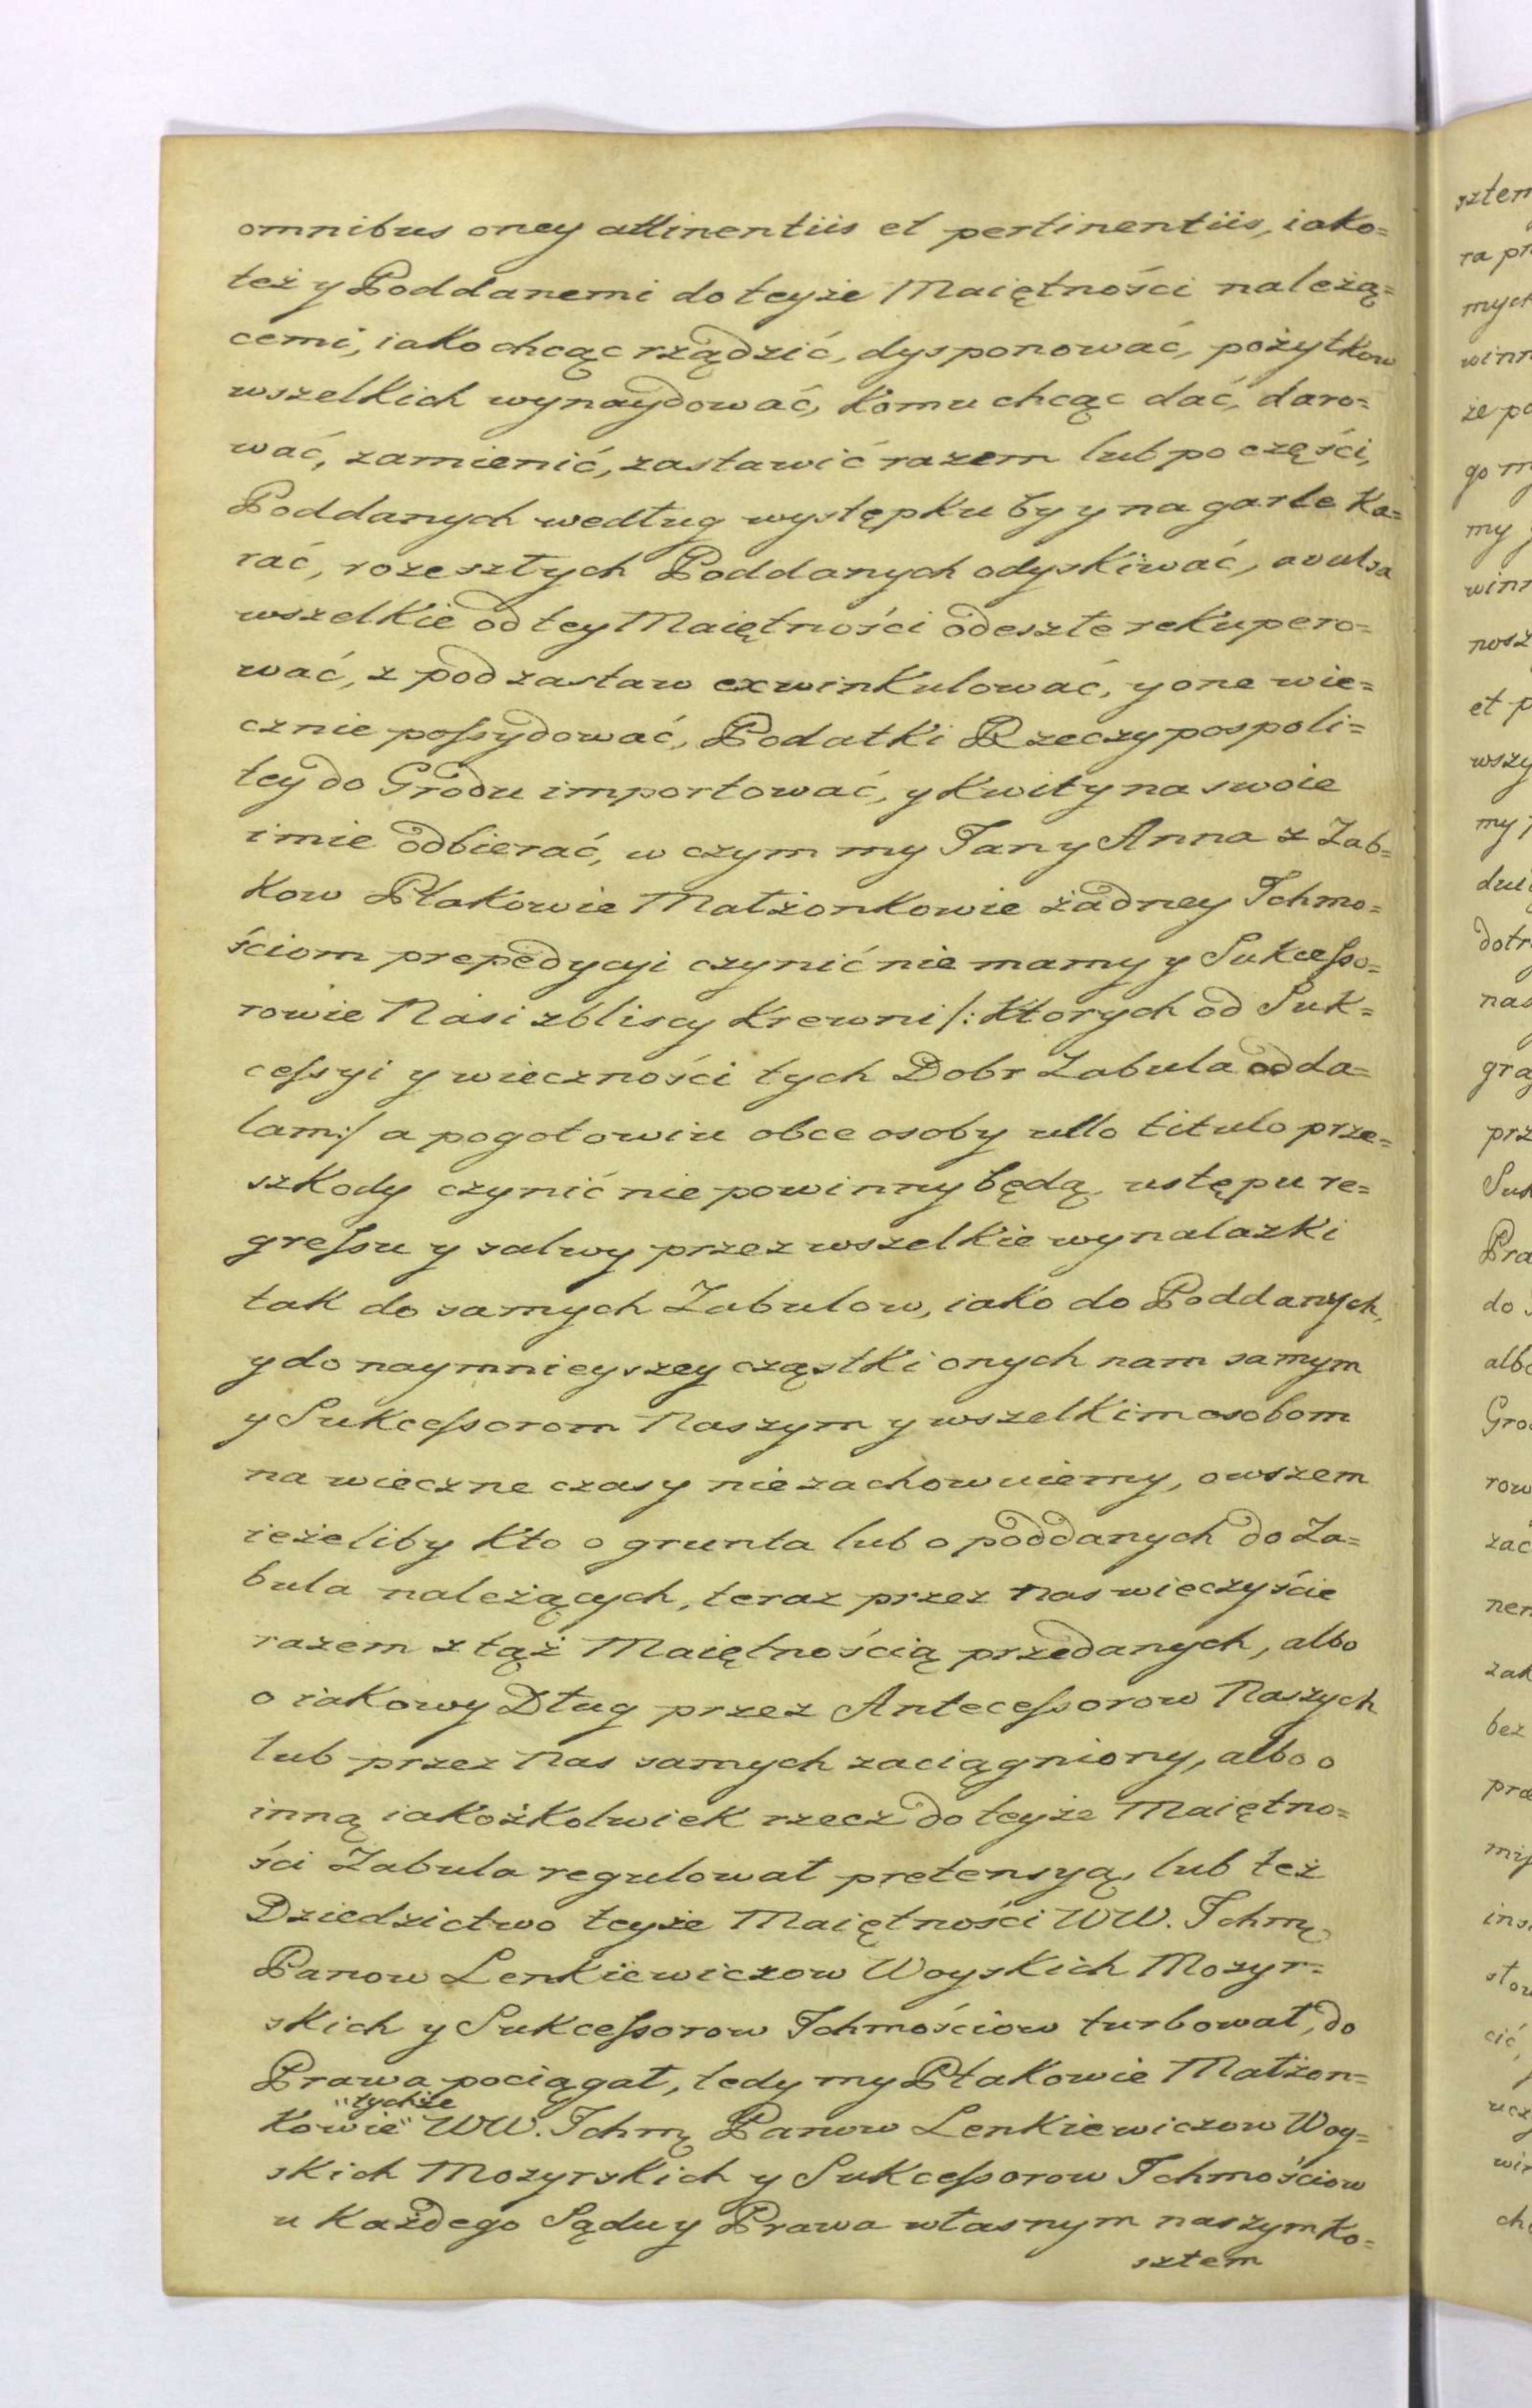 omnibus oney attinentiis et pertinentiis, iako=
też y Poddanemi do teyże Maiętności należą=
cemi, iako chcąc rządzić, dysponować, pożytkow
wszelkich wynaydować, komu chcąc dać, daro=
wać, zamienić, zastawić razem lub po części,
Poddanych według występku by y na garle ka=
rać, rozeszłych Poddanych odyskiwać, avulsa
wszelkie od tey Maiętności odeszłe rekupero=
wać, z pod zastaw exwinkulować, y one wie=
cznie possydować, Podatki Rzeczypospoli=
tey do Grodu importować, y kwity na swoie
imie odbierać, w czym my Jan y Anna z Zab=
kow Ptakowie Małżonkowie żadney Ichmo=
ściom prepedycyi czynić nie mamy y Sukcesso=
rowie Nasi zbliscy krewni /: ktorych od Suk=
cessyi y wieczności tych Dobr Zabula odda=
lam :/ a pogotowiu obce osoby ullo titulo prze=
szkody czynić nie powinny będą, ustępu re=
gressu y salwy przez wszelkie wynalazki
tak do samych Zabulow, iako do Poddanych,
y do naymnieyszey cząstki onych nam samym
y Sukcessorom Naszym y wszelkim osobom
na wieczne czasy nie zachowuiemy, owszem
ieżeliby kto o grunta lub o poddanych do Za=
bula należących, teraz przez nas wieczyście
razem z tąż Maiętnością przedanych, albo
o iakowy Dług przez Antecessorow Naszych
lub przez Nas samych zaciągniony, albo o
inną iakożkolwiek rzecz do teyże Maiętno=
ści Zabula regulował pretensyą, lub też
Dziedzictwo teyże Maiętności WW. Ichmę
Panow Lenkiewiczow Woyskich Mozyr=
skich y Sukcessorow Ichmościow turbował, do
Prawa pociągał, tedy my Ptakowie Małżon=
kowie "tychże" WW. Ichmę Panow Lenkiewiczow Woy=
skich Mozyrskich y Sukcessorow Ichmościow
u każdego Sądu y Prawa własnym naszym ko=
sztem
sztem
ra pr
mych
winn
że po
go m
my
winn
nosz
et p
wszy
my
dotr
nas
grą
prz
Suk
Pra
do
albo
Gro
row
zac
nem
zak
bez
pra
cić,
ucz
win